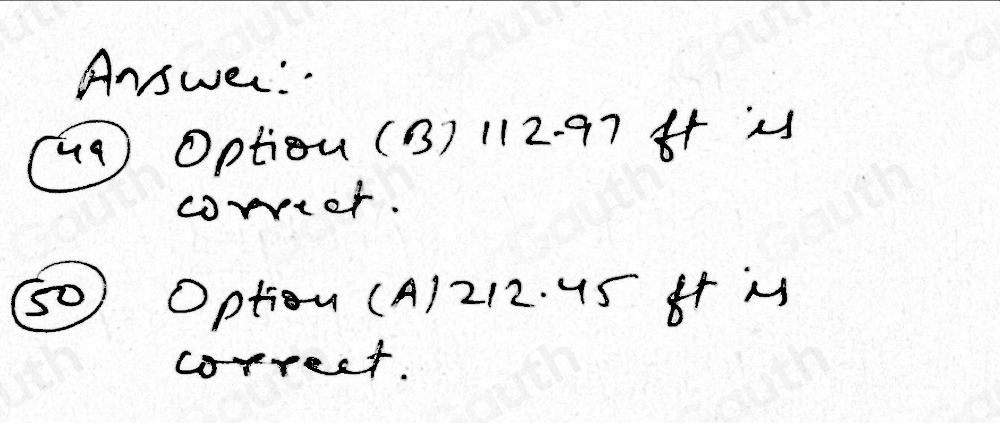 Answer:.
(49) Option (B) 112.97 ft is
correct.
(50) Option (A) 212.45 ft is
correct.